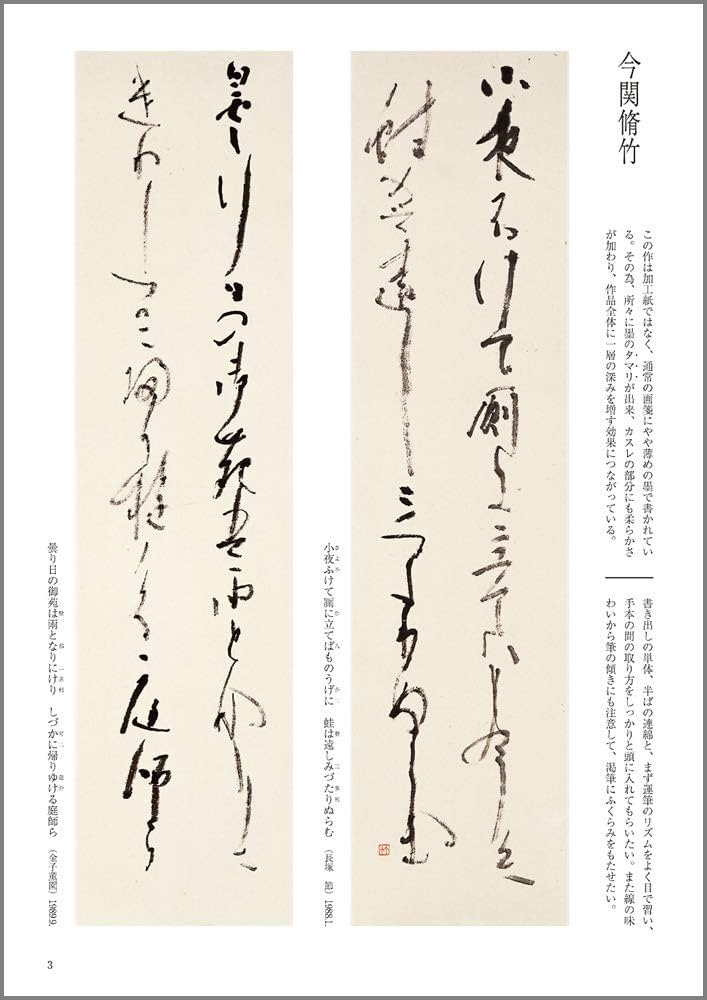 今関脩竹
この作は加工紙ではなく、通常の画箋にやや薄めの墨で書かれてい
る。その為、所々に墨のタマリが出来、カスレの部分にも柔らかさ
が加わり、作品全体に一層の深みを増す効果につながっている。
書き出しの単体、半ばの連綿と、まず運筆のリズムをよく目で習い、
手本の間の取り方をしっかりと頭に入れてもらいたい。また線の味
わいから筆の傾きにも注意して、渇筆にふくらみをもたせたい。
小夜ふけて厠に立てばものうげに 蛙は遠しみづたりぬらむ （長塚 節） 1988.1.
曇り日の御苑は雨となりにけり しづかに帰りゆける庭師ら （金子薫園） 1989.9.
3